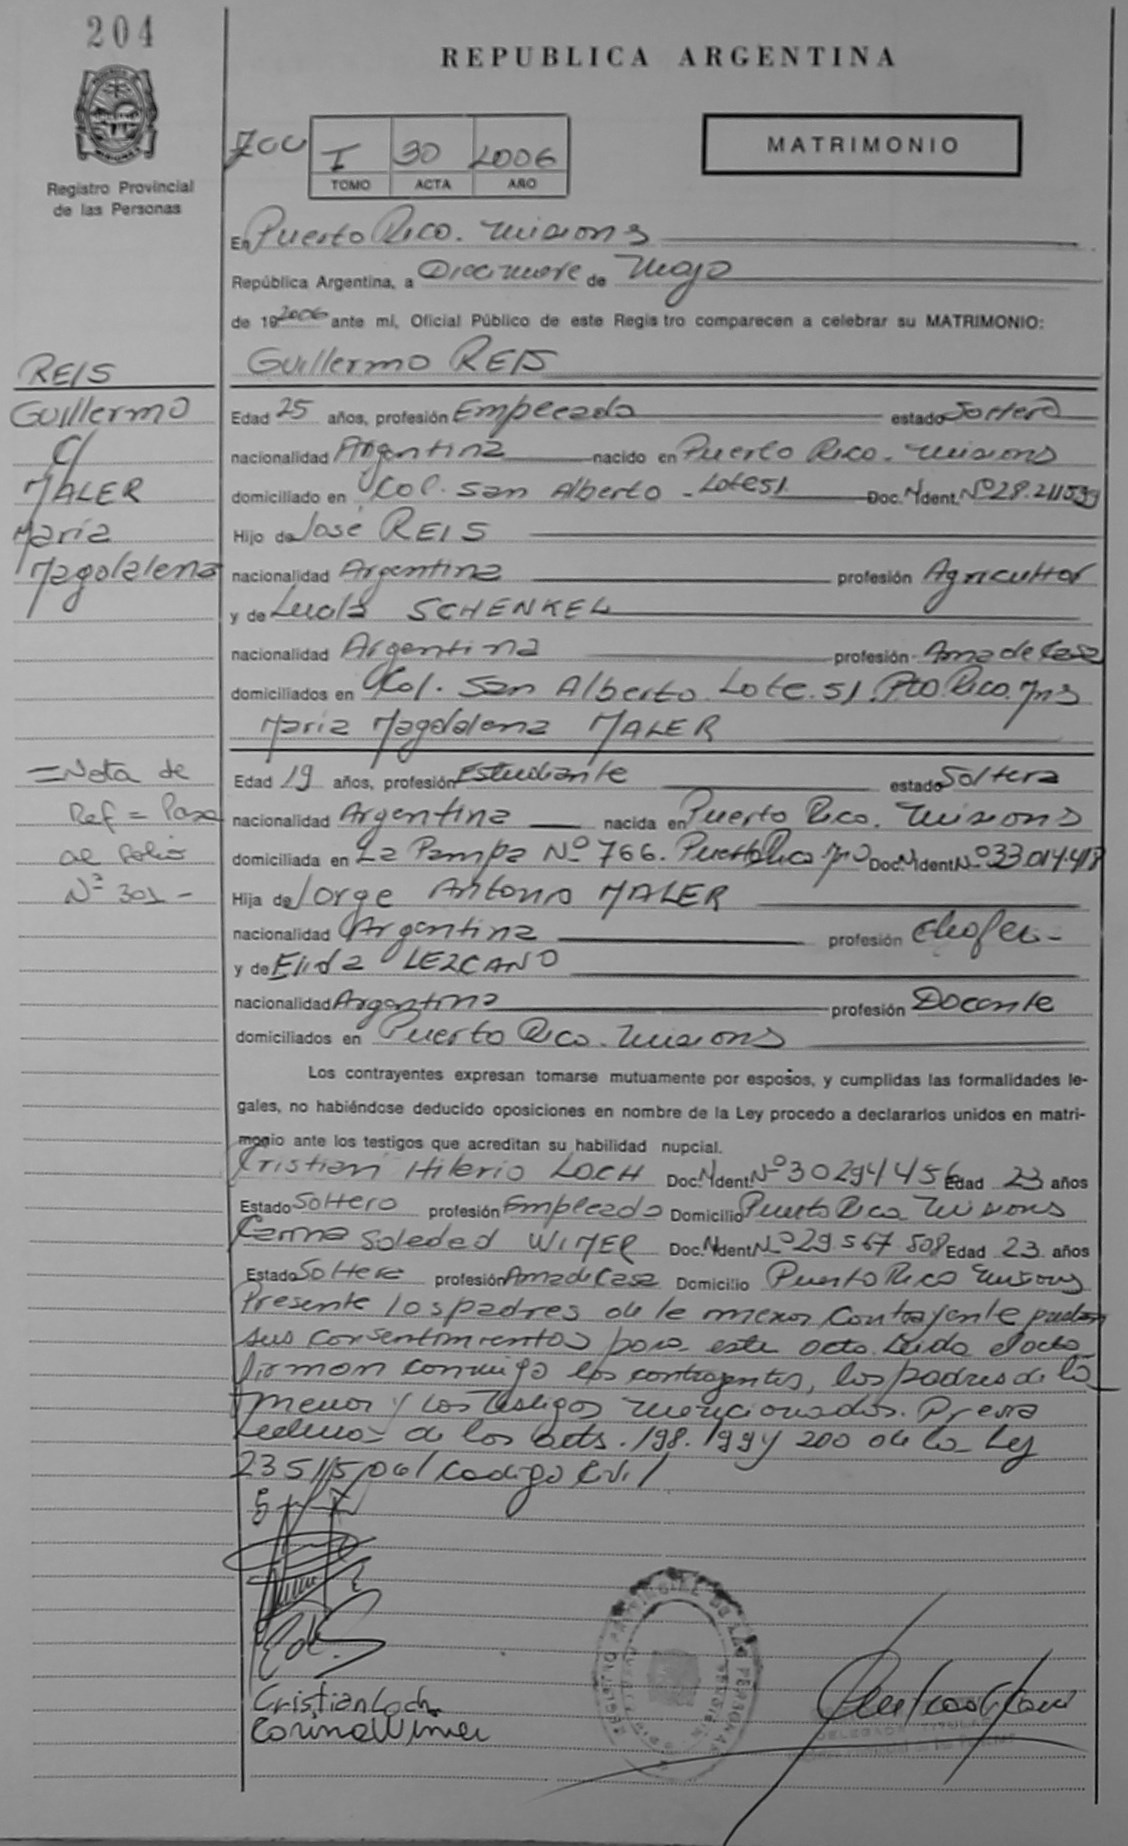 204
REPUBLICA ARGENTINA
I 30 2006
TOMO ACTA AÑO
MATRIMONIO
Registro Provincial
de las Personas
En Puerto Rico. Misions
República Argentina, a de Mayo
de 19 2006 ante mí, Oficial Público de este Registro comparecen a celebrar su MATRIMONIO:
REIS
Guillermo
c/
MALER
María
Magdalena
Guillermo REIS
Edad 25 años, profesión Empleado estado Soltero
nacionalidad Argentina nacido en Puerto Rico. Misions
domiciliado en Col. San Alberto - Lote 51 Doc. Ident. Nº 28.211599
Hijo de José REIS
nacionalidad Argentina profesión Agricultor
y de SCHENKEL
nacionalidad Argentina profesión Ama de Casa
domiciliados en Col. San Alberto. Lote. 51. Pto. Rico. Mns
María Magdalena MALER
=Nota de
Ref = Pasa
al folio
Nº 301 -
Edad 19 años, profesión Estudiante estado Soltera
nacionalidad Argentina nacida en Puerto Rico. Misions
domiciliada en La Pampa Nº 766. Puerto Rico Doc. Ident. Nº 33.014.418
Hija de Jorge Antonio MALER
nacionalidad Argentina profesión Chofer-
y de Elida LEZCANO
nacionalidad Argentina profesión Docente
domiciliados en Puerto Rico. Misions
Los contrayentes expresan tomarse mutuamente por esposos, y cumplidas las formalidades le-
gales, no habiéndose deducido oposiciones en nombre de la Ley procedo a declararlos unidos en matri-
monio ante los testigos que acreditan su habilidad nupcial.
Cristian Hilario LOCH Doc. Ident Nº 30294456 Edad 23 años
Estado Soltero profesión Empleado Domicilio Puerto Rico Misions
Carina Soledad WIMER Doc. Ident Nº 29.567.508 Edad 23 años
Estado Soltera profesión Ama de Casa Domicilio Puerto Rico Misions
Presente los padres de la menor Contrayente prestan
sus consentimientos para este acto. Leida el acta
firman conmigo los contrayentes, los padres de la
menor y los testigos mencionados. Previa
lectura de los arts. 198. 199 y 200 de la Ley
23515, del Codigo Civil
Cristian Loch
Corina Wimer